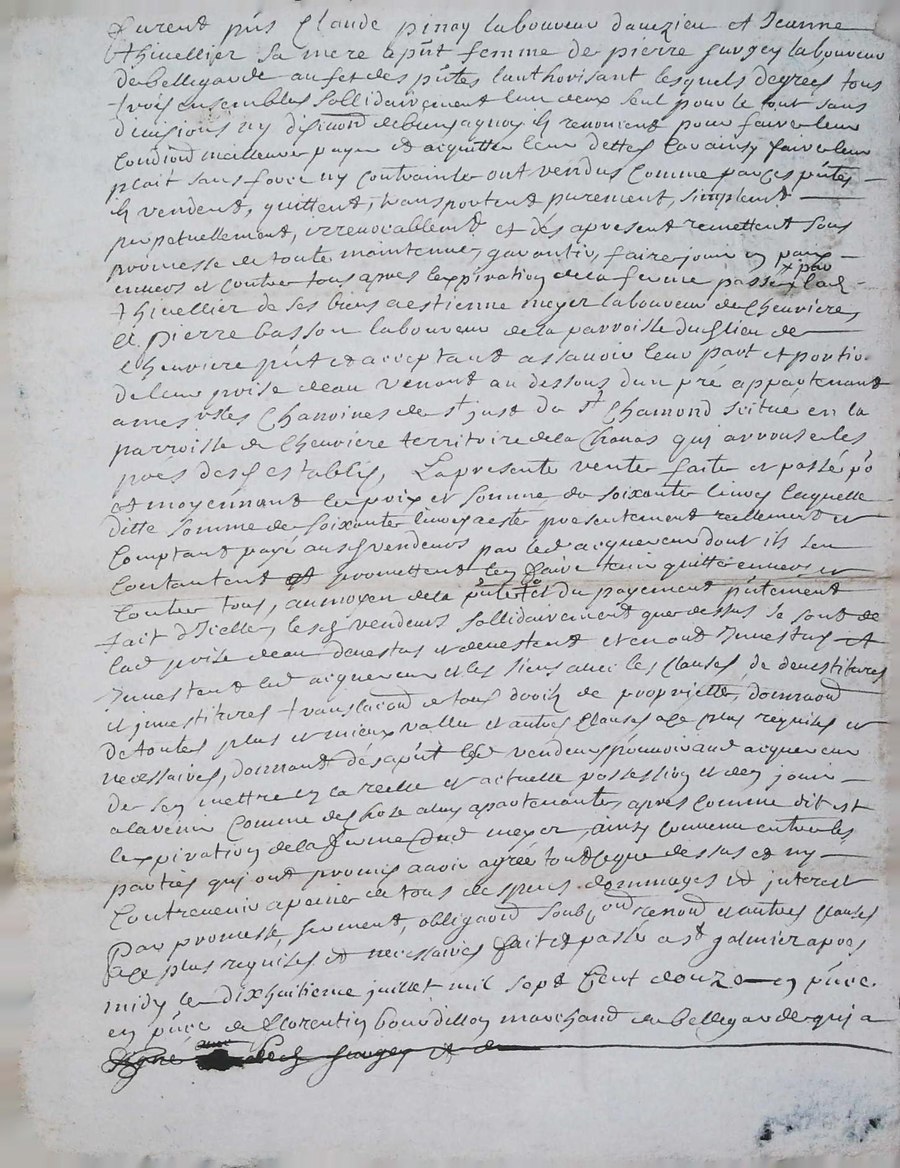 furent pñs Claude pinay laboureur daveizieu et Jeanne
thivellier sa mere a pñt femme de pierre gurgey laboureur
de bellegarde au fet des pñtes lauthorisant lesquels degrees tous
trois ensembles sollidairement lun deux seul pour le tout sans
divisions ny de quoy ils renoncent pour faire leur
condiond meilleure payer et acquitter leur dettes car ainsy faire leur
plait sans force ny contrainte ont vendus comme par ces pñtes
ils vendent, quittent, transportent purement, simplemt
perpetuellement, irrevocablemt et dés apresent remettent sous
promesse de toute maintenue, garantir, faire jouir en paix
envers et contre tous apres lexpiration de la ferme passée par lad
thivellier de ses biens a estienne meyer laboureur de Cheuviere
et pierre basson laboureur de la parroisse dud lieu de
Cheuviere pñt et acceptant assavoir leur part et portion
de leur prise deau venant au dessous dun pré appartenant
a messrs les Chanoines de st just du st Chamond scitue en la
parroisse de Cheuviere territoire de la Chanas qui arrouse les
prés desd establis, La presente vente faite et passé po
et moyennant le prix et somme de soixante livres laquelle
ditte somme de soixante livres a esté presentement reellement et
comptant payé ausd vendeurs par led acquereur dont ils sen
contantent et promettent len faire tenir quitte envers et
contre tous, au moyen de la pñte et du payement pñtement
fait dicelle, lesd vendeurs sollidairement que dessus se sont de
lad prise deau devestus et devestent et en ont Jnvestus et
Jnvestent led acquereur et les siens avec les clauses de devestitures
et jnvestitures translaciond de tous droits de proprietté, donnaond
de toutes plus et mieux vallue et autres clauses a ce plus requises et
necessaires, donnant dés apñt led vendeurs pouvoir aud acquereur
de sen mettre en la reelle et actuelle possession et den jouir
a lavenir comme de chose a luy appartenante apres comme dit est
lexpiration de la ferme dud meyer, ainsy convenu entre les
parties qui ont promis avoir agréé tout ce que dessus et ny
contrevenir a peine de tous despens dommages et interest
Par promesse, serment, obligaond soub renond et autres clauses
a ce plus requises et necessaires fait et passé a st galmier apres
midy le dixhuitieme juillet mil sept cent douze en pñce
en pñce de florentin bourdillon marchand de bellegarde qui a
signé gurgey et de